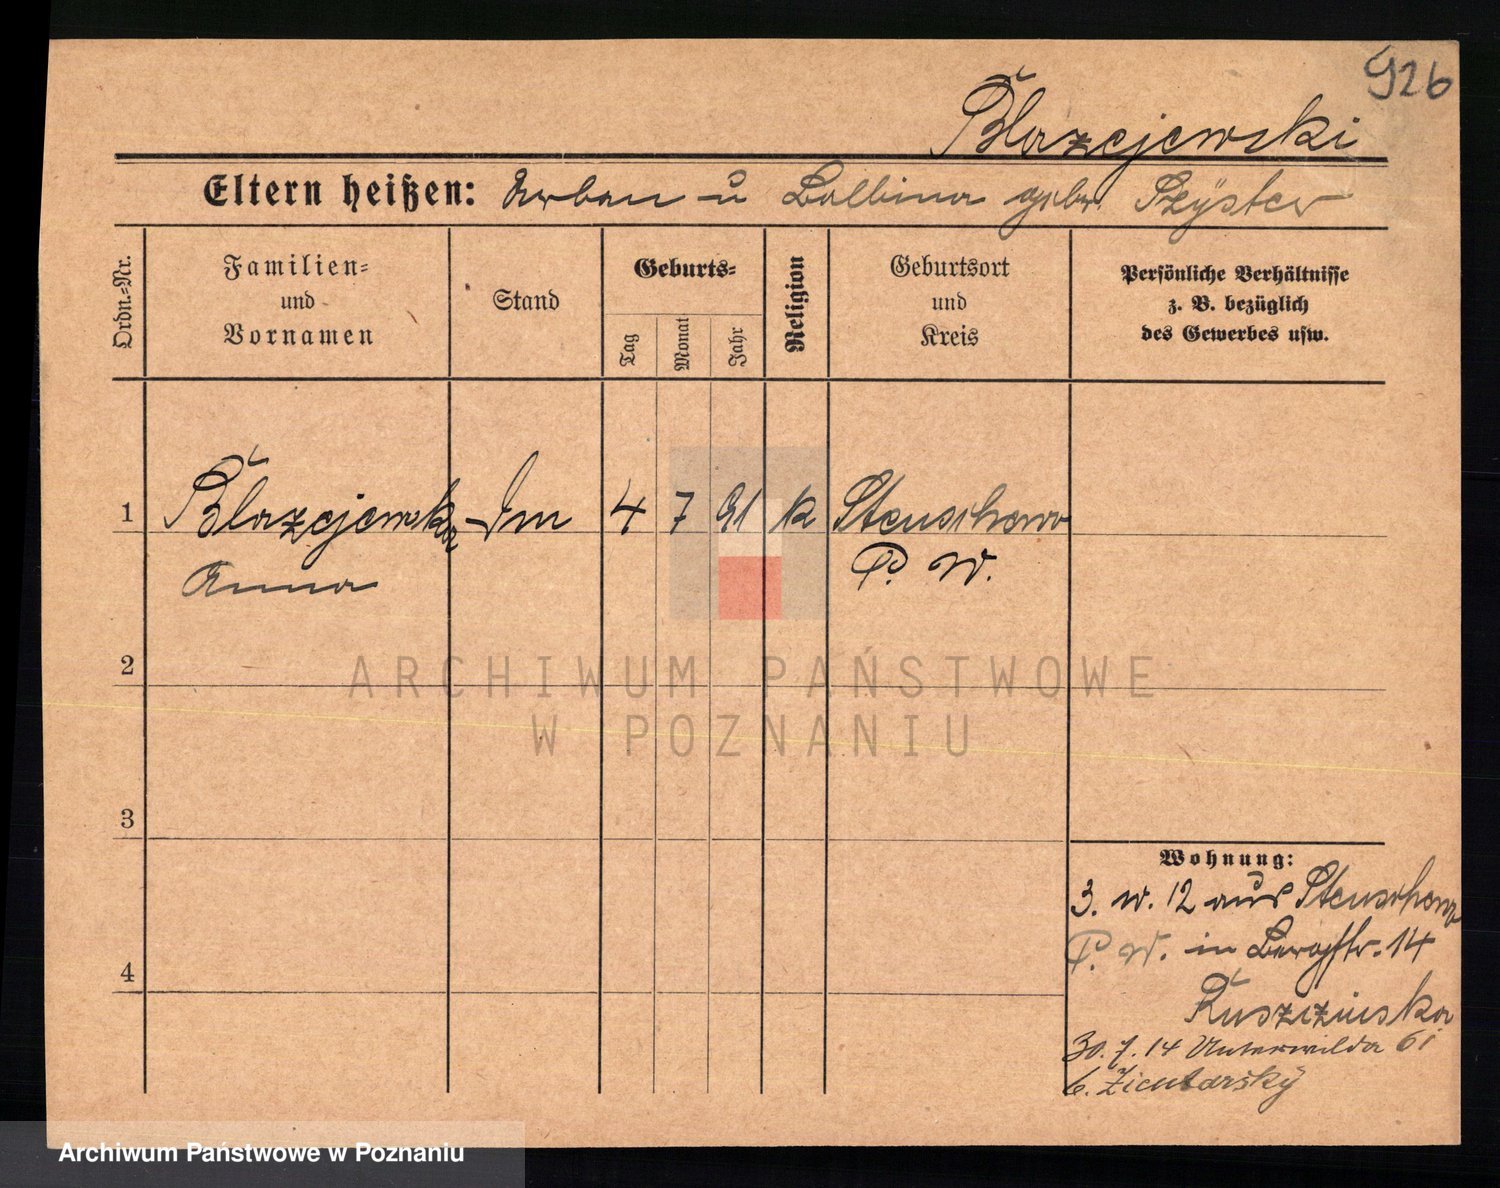 926
Blazejewski
Eltern heißen: Urban u Balbina gebr. Szyster
Ordn.-Nr.
Familien-
und
Vornamen
Stand
Geburts-
Tag
Monat
Jahr
Religion
Geburtsort
und
Kreis
Persönliche Verhältnisse
z. B. bezüglich
des Gewerbes usw.
1 Blazejewska 4 7 91 k Steuschewo
Anna P. W.
2
3
4
Wohnung:
3. 12 aus Steuschewo
P. W. in Bergstr. 14
30. 7. 14 Unterwilda 61
b. Zientarsky
ARCHIWUM PAŃSTWOWE
W POZNANIU
Archiwum Państwowe w Poznaniu